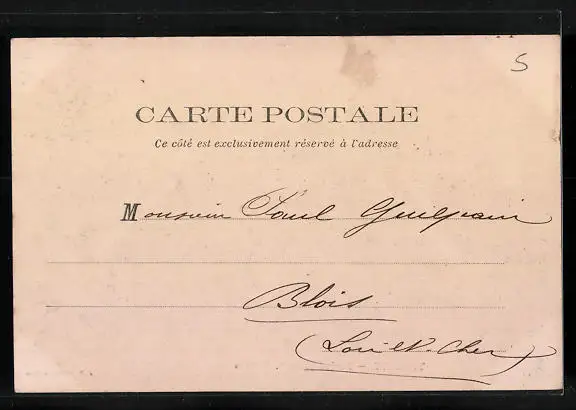 S
CARTE POSTALE
Ce côté est exclusivement réservé à l'adresse
Monsieur Paul
Blois
(Loir et Cher)